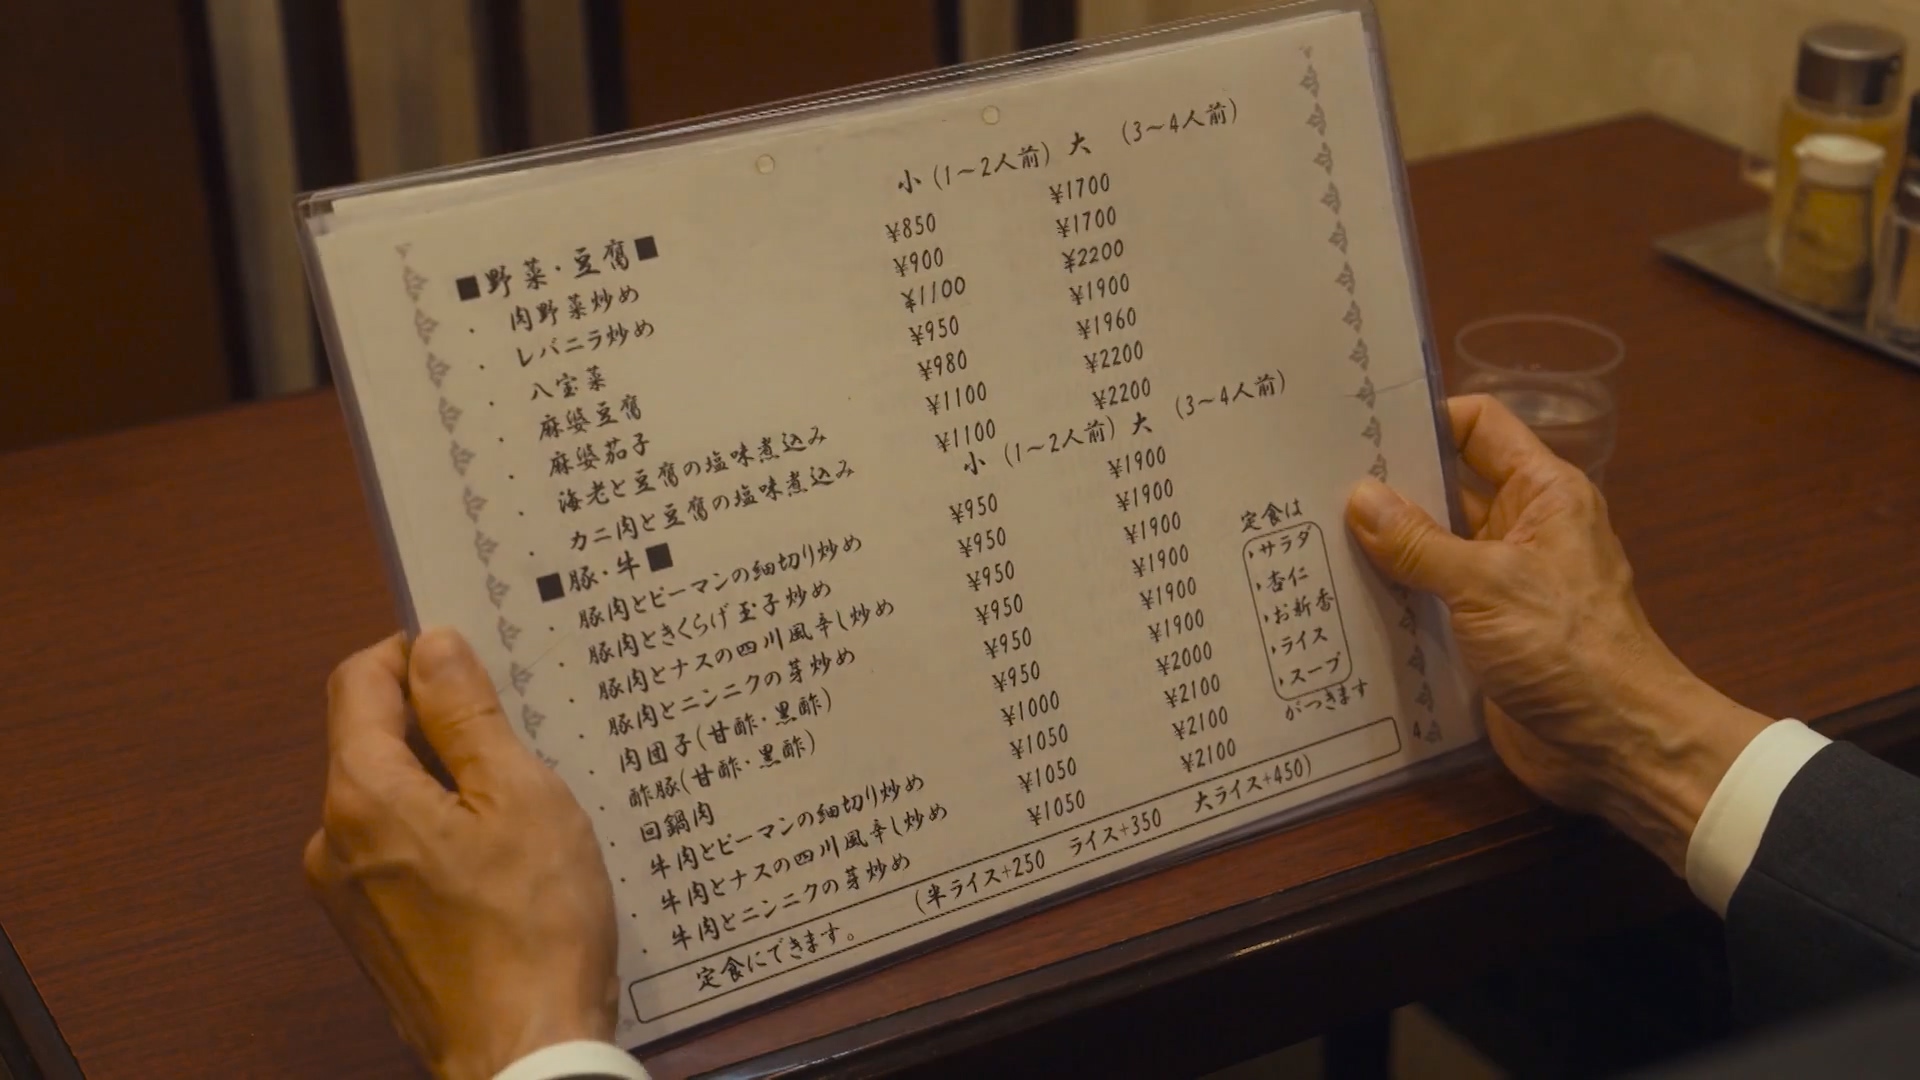 小(1〜2人前) 大 (3〜4人前)
■野菜・豆腐■
・ 肉野菜炒め ¥850 ¥1700
・ レバニラ炒め ¥900 ¥1700
・ 八宝菜 ¥1100 ¥2200
・ 麻婆豆腐 ¥950 ¥1900
・ 麻婆茄子 ¥980 ¥1960
・ 海老と豆腐の塩味煮込み ¥1100 ¥2200
・ カニ肉と豆腐の塩味煮込み ¥1100 ¥2200
■豚・牛■ 小 (1〜2人前) 大 (3〜4人前)
・ 豚肉とピーマンの細切り炒め ¥950 ¥1900
・ 豚肉ときくらげ玉子炒め ¥950 ¥1900
・ 豚肉とナスの四川風辛し炒め ¥950 ¥1900
・ 豚肉とニンニクの芽炒め ¥950 ¥1900
・ 肉団子(甘酢・黒酢) ¥950 ¥1900
・ 酢豚(甘酢・黒酢) ¥950 ¥1900
・ 回鍋肉 ¥1000 ¥2000
・ 牛肉とピーマンの細切り炒め ¥1050 ¥2100
・ 牛肉とナスの四川風辛し炒め ¥1050 ¥2100
・ 牛肉とニンニクの芽炒め ¥1050 ¥2100
定食は
・サラダ
・杏仁
・お新香
・ライス
・スープ
がつきます
定食にできます。 (半ライス+250 ライス+350 大ライス+450)
4